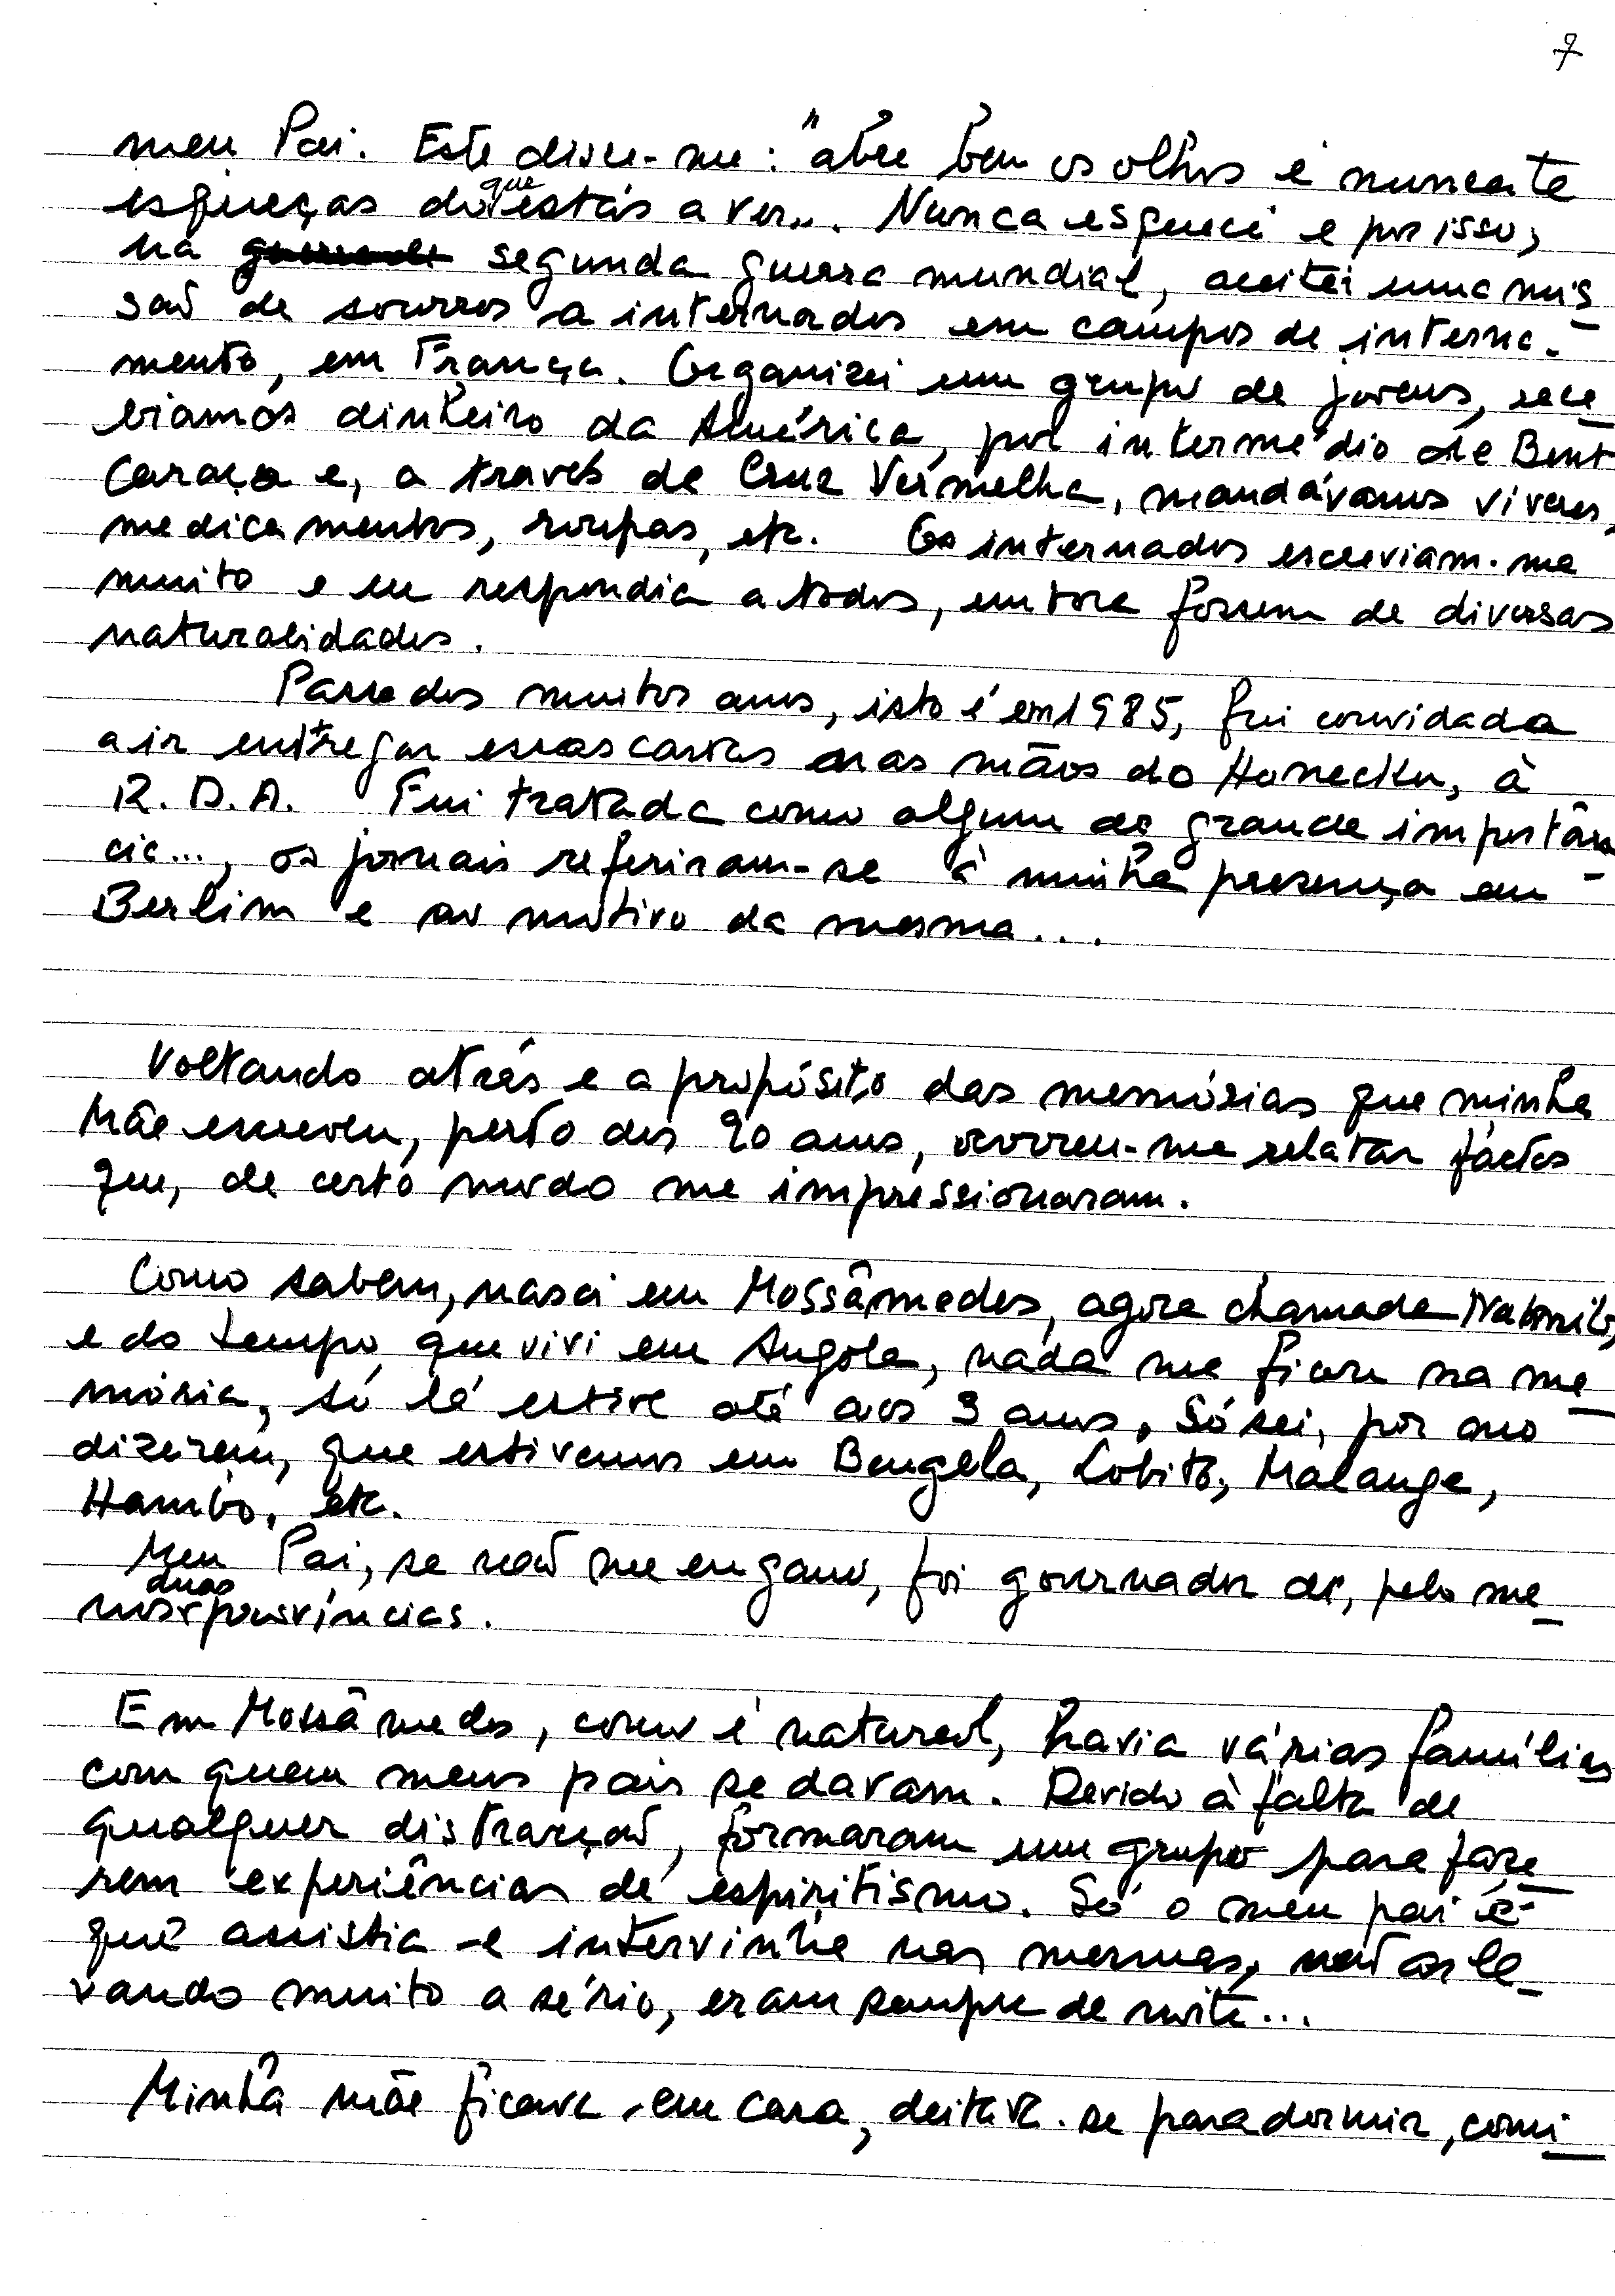 7
meu Pai. Este disse-me: "abre bem os olhos e nunca te
esqueças do que estás a ver". Nunca esqueci e por isso,
na segunda guerra mundial, aceitei uma mis_
são de socorros a internados em campos de interna-
mento, em França. Organizei um grupo de jovens, rece_
biamos dinheiro da América, por intermédio de Bent
Caraça e, a través da Cruz Vermelha, mandávamos viveres,
medicamentos, roupas, etc. Os internados escreviam-me
muito e eu respondia a todos, embora fossem de diversas
naturalidades.
Passados muitos anos, isto é em 1985, fui convidada
a ir entregar essas cartas nas mãos do Honecker, à
R.D.A. Fui tratada como alguem de grande importân
cia..., os jornais referiram-se à minha presença em
Berlim e ao motivo da mesma....
Voltando atrás e a propósito das memórias que minha
Mãe escreveu, perto dos 90 anos, ocorreu-me relatar factos
que, de certo modo me impressionaram.
Como sabem, nasci em Mossâmedes, agora chamada
e do tempo que vivi em Angola, nada me ficou na me_
mória, só lá estive até aos 3 anos. Só sei, por mo
dizerem, que estivemos em Bengela, Lobito, Malange,
Hambo, etc.
Meu Pai, se não me engano, foi governador de, pelo me_
nos duas provincias.
Em Mossâmedes, como é natural, havia várias famílias
com quem meus pais se davam. Devido à falta de
qualquer distração, formaram um grupo para faze_
rem experiências de espiritismo. Só o meu pai é
que assistia e intervinha nas mesmas, não as le_
vando muito a sério, eram sempre de noite...
Minha mãe ficava em casa, deitava-se para dormir, comi_